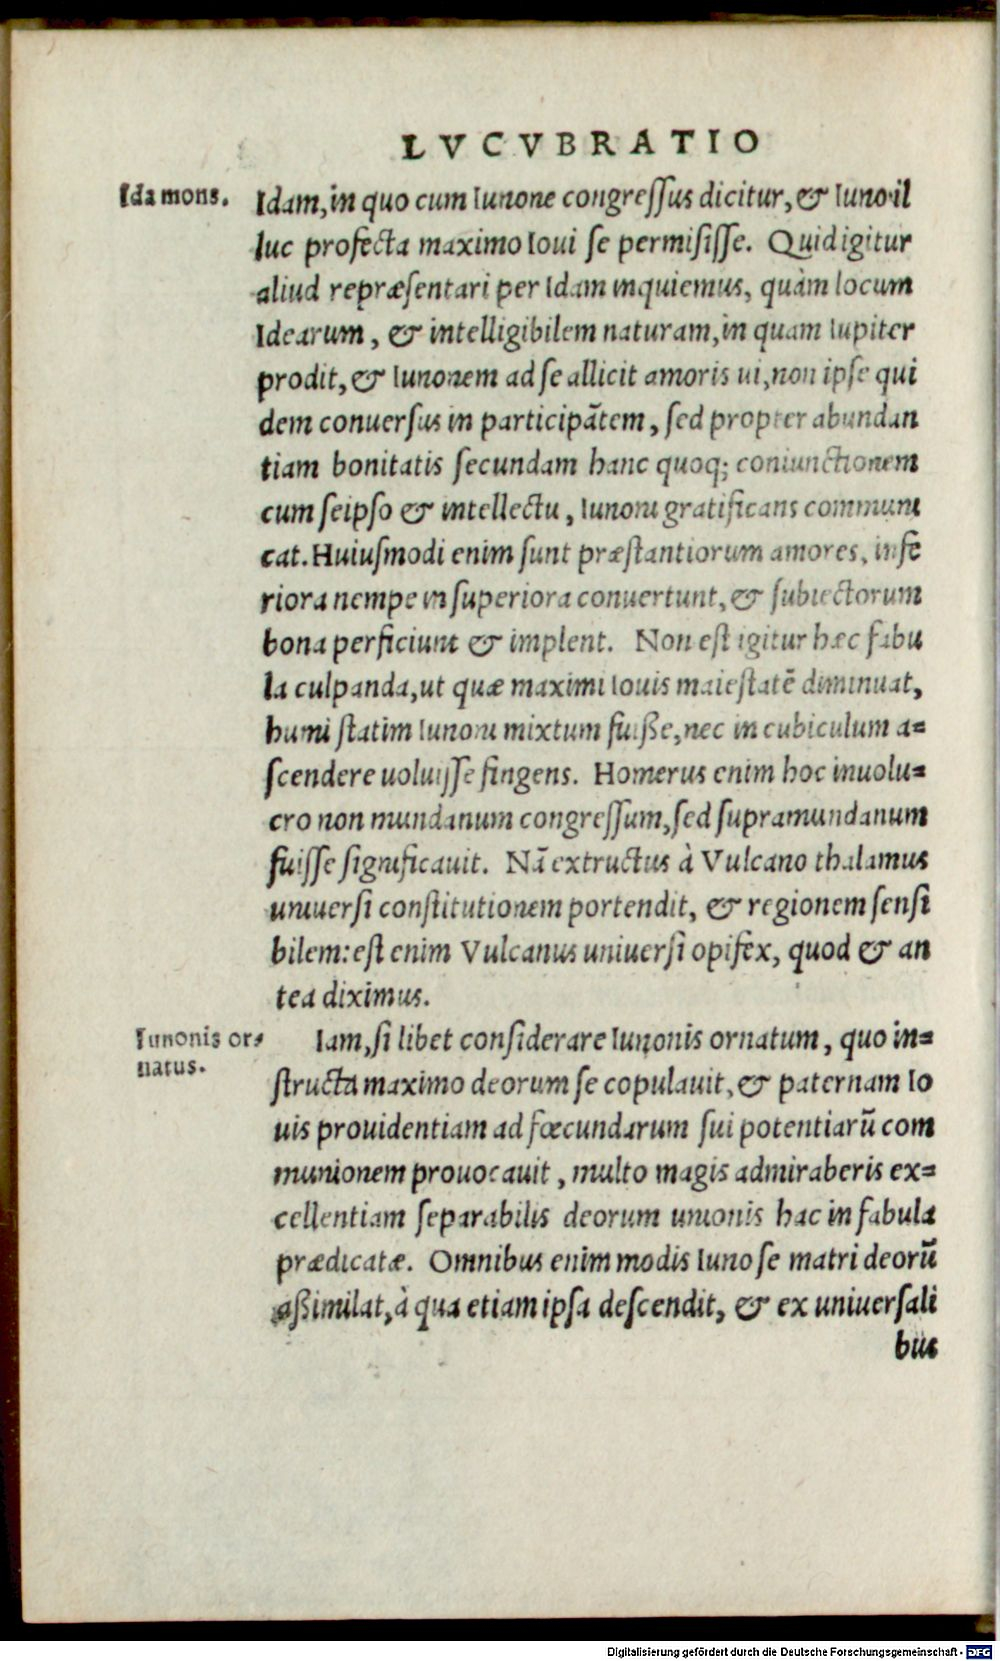 LVCVBRATIO
Ida mons.
Idam, in quo cum Iunone congressus dicitur, & Iuno il
luc profecta maximo Ioui se permisisse. Quid igitur
aliud repræsentari per Idam inquiemus, quàm locum
Idearum, & intelligibilem naturam, in quam Iupiter
prodit, & Iunonem ad se allicit amoris ui, non ipse qui
dem conuersus in participãtem, sed propter abundan
tiam bonitatis secundam hanc quoq; coniunctionem
cum seipso & intellectu, Iunoni gratificans communi
cat. Huiusmodi enim sunt præstantiorum amores, infe
riora nempe in superiora conuertunt, & subiectorum
bona perficiunt & implent. Non est igitur hæc fabu
la culpanda, ut quæ maximi Iouis maiestatē diminuat,
humi statim Iunoni mixtum fuiße, nec in cubiculum a=
scendere uoluisse fingens. Homerus enim hoc inuolu=
cro non mundanum congressum, sed supramundanum
fuisse significauit. Nã extructus à Vulcano thalamus
uniuersi constitutionem portendit, & regionem sensi
bilem: est enim Vulcanus uniuersi opifex, quod & an
tea diximus.
Iunonis or=
natus.
Iam, si libet considerare Iunonis ornatum, quo in=
structa maximo deorum se copulauit, & paternam Io
uis prouidentiam ad fœcundarum sui potentiarũ com
munionem prouocauit, multo magis admiraberis ex=
cellentiam separabilis deorum unionis hac in fabula
prædicatæ. Omnibus enim modis Iuno se matri deorũ
aßimilat, à qua etiam ipsa descendit, & ex uniuersali
bus
Digitalisierung gefördert durch die Deutsche Forschungsgemeinschaft - DFG